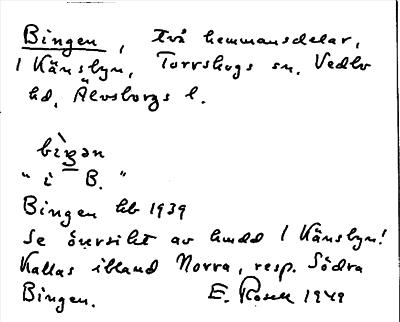 Bingen, två hemmansdelar,
1 Känsbyn, Torrskogs sn, Vedbo
hd, Älvsborgs l.
bìŋən
" i B. "
Bingen kb 1939
Se översikt av hmdd 1 Känsbyn!
Kallas ibland Norra, resp. Södra
Bingen. E. Rosell 1949